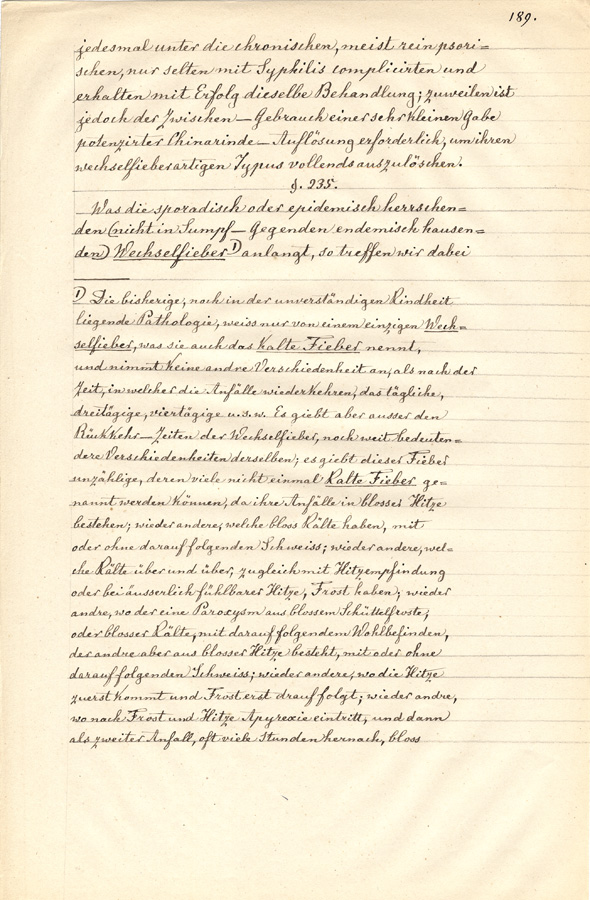 189.
jedesmal unter die chronischen, meist rein psori=
schen, nur selten mit Syphilis complicirten und
erhalten mit Erfolg dieselbe Behandlung; zuweilen ist
jedoch der Zwischen-Gebrauch einer sehr kleinen Gabe
potenzirter Chinarinde-Auflösung erforderlich, um ihren
wechselfieberartigen Typus vollends auszulöschen.
§. 235.
Was die sporadisch oder epidemisch herrschen=
den (nicht in Sumpf-Gegenden endemisch hausen=
den) Wechselfieber 1) anlangt, so treffen wir dabei
1) Die bisherige, noch in der unverständigen Kindheit
liegende Pathologie, weiss nur von einem einzigen Wech=
selfieber, was sie auch das Kalte Fieber nennt,
und nimmt keine andre Verschiedenheit an, als nach der
Zeit, in welcher die Anfälle wiederkehren, das tägliche,
dreitägige, viertägige u.s.w. Es giebt aber ausser den
Rückkehr-Zeiten der Wechselfieber, noch weit bedeuten=
dere Verschiedenheiten derselben; es giebt dieser Fieber
unzählige, deren viele nicht einmal Kalte Fieber ge=
nannt werden können, da ihre Anfälle in blosser Hitze
bestehen; wieder andere, welche bloss Kälte haben, mit
oder ohne darauf folgenden Schweiss; wieder andere, wel=
che Kälte über und über, zugleich mit Hitzempfindung
oder bei äusserlich fühlbarer Hitze, Frost haben; wieder
andre, wo der eine Paroxysm aus blossem Schüttelfroste,
oder blosser Kälte, mit darauf folgendem Wohlbefinden,
der andre aber aus blosser Hitze besteht, mit oder ohne
darauf folgenden Schweiss; wieder andere, wo die Hitze
zuerst kommt und Frost erst drauf folgt; wieder andre,
wo nach Frost und Hitze Apyrexie eintritt, und dann
als zweiter Anfall, oft viele Stunden hernach, bloss